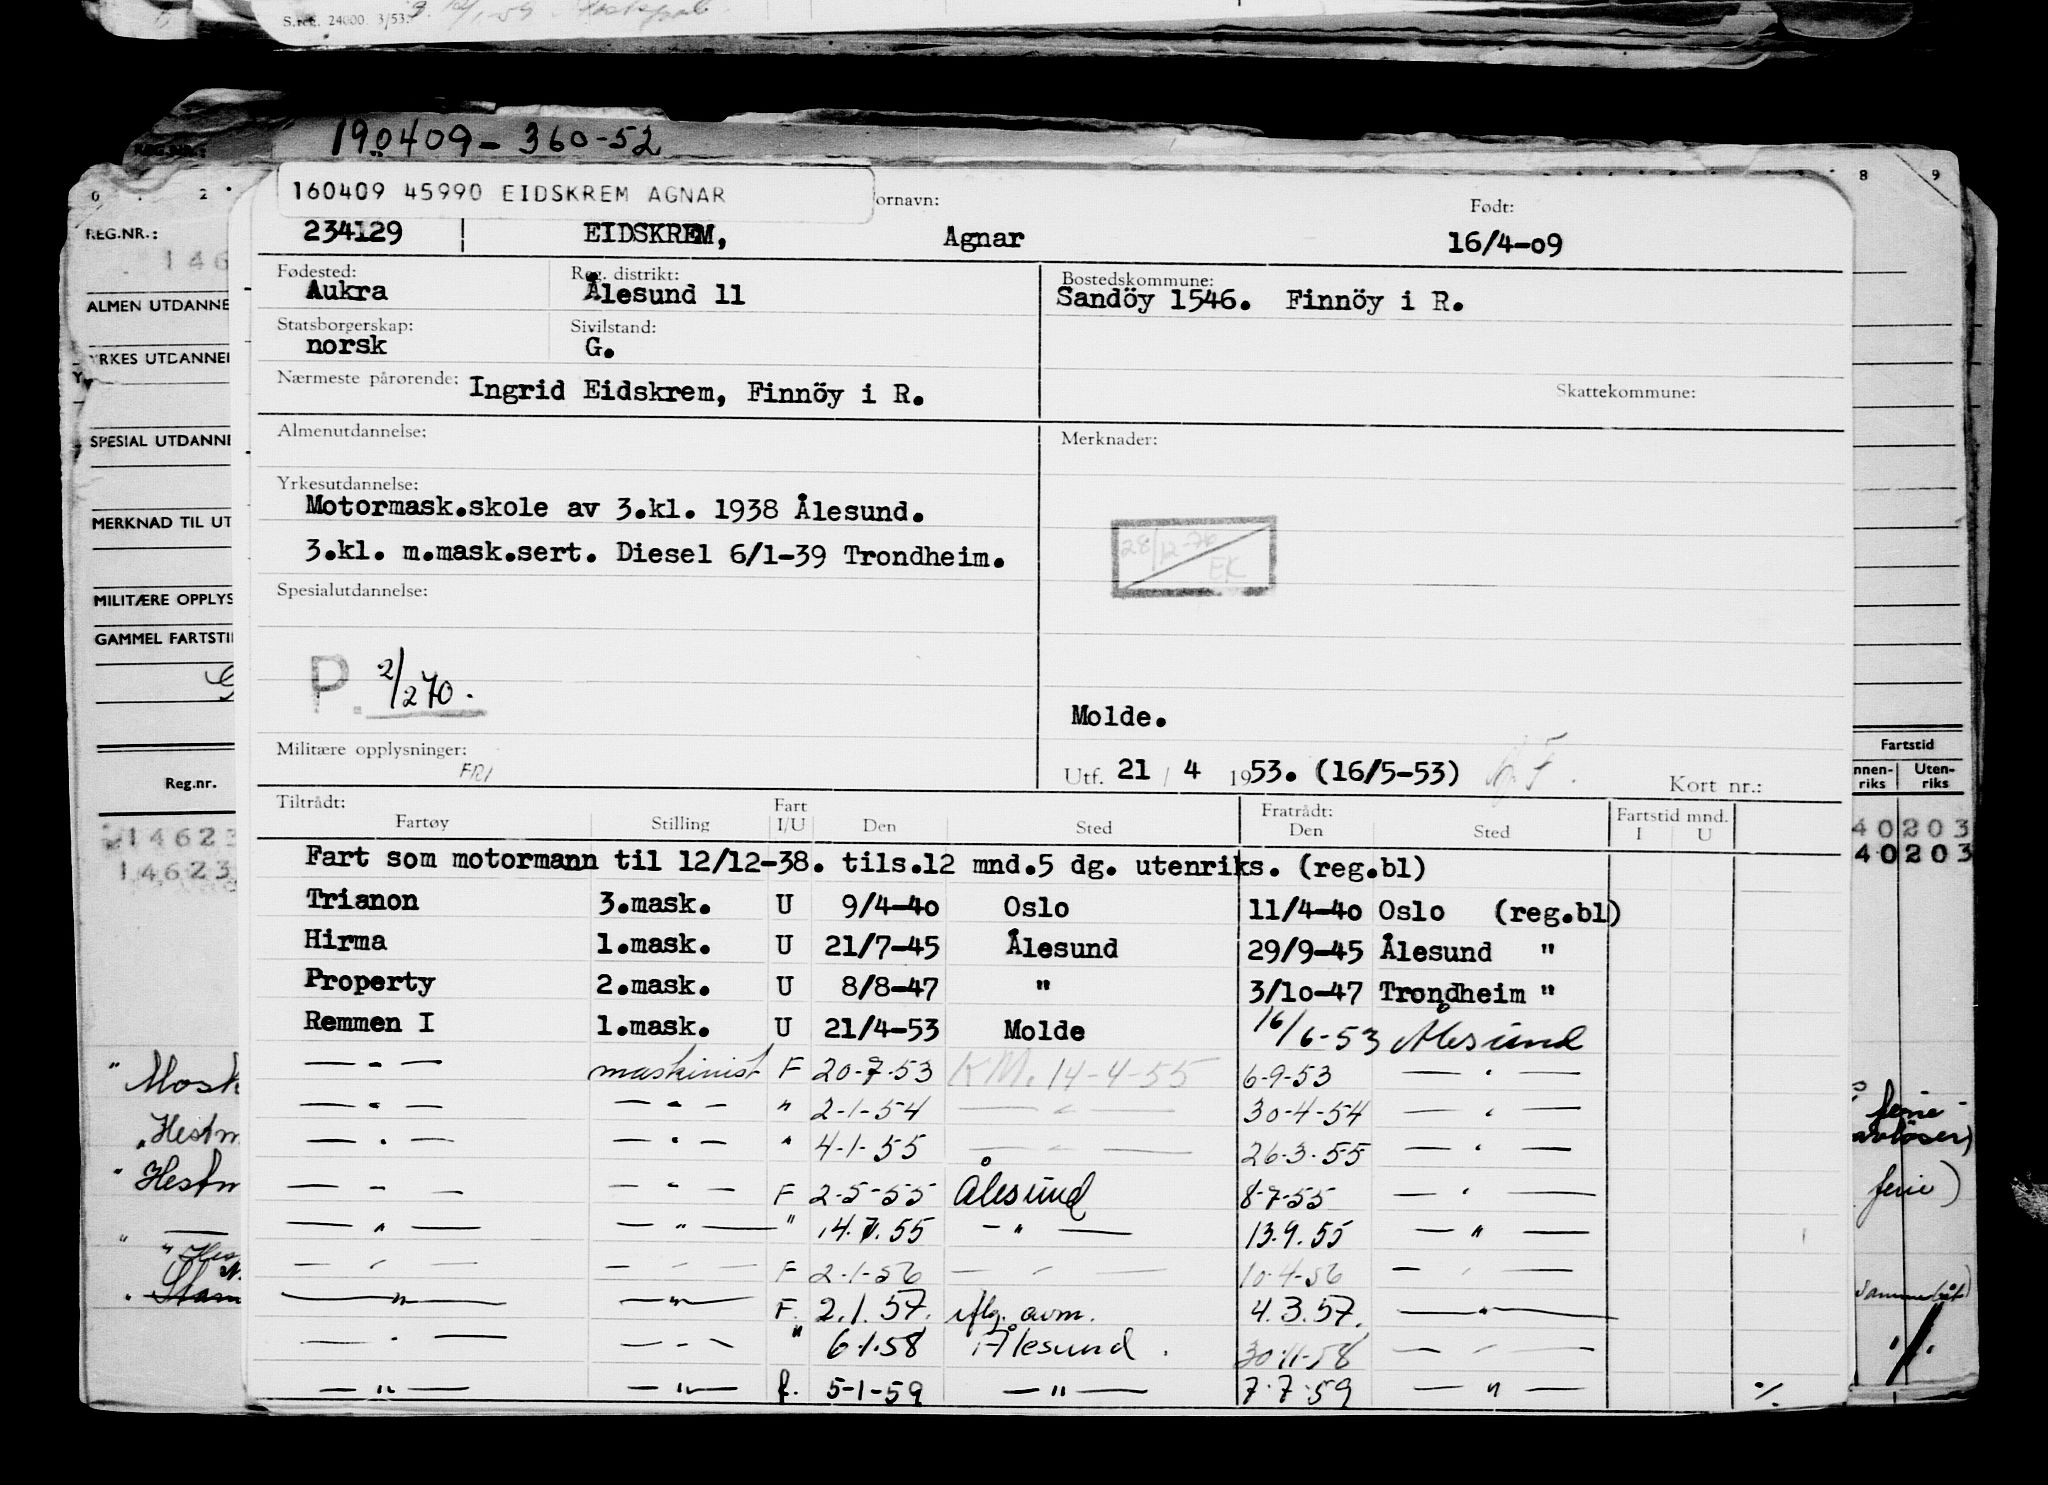 S.reg. 24000 3/53.
190409-360-52
REG.NR.:
146
ALMEN UTDANNE
YRKES UTDANNE
SPESIAL UTDANNE
MERKNAD TIL UT
MILITÆRE OPPLYS
GAMMEL FARTSTI
Reg.nr.
14623
14623
8 9
Fartstid
nnen-riks Uten-riks
40203
40203
160409 45990 EIDSKREM AGNAR
ornavn: Født:
234129 EIDSKREM, Agnar 16/4-09
Fødested: Reg. distrikt: Bostedskommune:
Aukra Ålesund 11 Sandöy 1546. Finnöy i R.
Statsborgerskap: Sivilstand:
norsk G.
Nærmeste pårørende: Ingrid Eidskrem, Finnöy i R. Skattekommune:
Almenutdannelse: Merknader:
Yrkesutdannelse:
Motormask.skole av 3.kl. 1938 Ålesund.
3.kl. m.mask.sert. Diesel 6/1-39 Trondheim.
28/12-76 EK
Spesialutdannelse:
P. 2/270.
Molde.
Militære opplysninger: FRI
Utf. 21 / 4 1953. (16/5-53) Kort nr.:
Tiltrådt: Fart Fratrådt: Fartstid mnd.
Fartøy Stilling I/U Den Sted Den Sted I U
Fart som motormann til 12/12-38. tils.12 mnd.5 dg. utenriks. (reg.bl)
Trianon 3.mask. U 9/4-40 Oslo 11/4-40 Oslo (reg.bl)
Hirma 1.mask. U 21/7-45 Ålesund 29/9-45 Ålesund "
Property 2.mask. U 8/8-47 " 3/10-47 Trondheim "
Remmen I 1.mask. U 21/4-53 Molde 16/6-53 Ålesund
— " — maskinist F 20-7-53 KM. 14-4-55 6-9-53 — " —
— " — — " — " 2-1-54 — " — 30-4-54 — " —
— " — — " — " 4-1-55 — " — 26-3-55 — " —
— " — — " — F 2-5-55 Ålesund 8-7-55 — " —
— " — — " — " 14.7.55 — " — 13.9.55 — " —
— " — — " — F 2-1-56 — " — 10-4-56 — " —
— " — — " — F. 2.1.57. iflg. avm. 4.3.57. — " —
— " — — " — " 6.1.58 Ålesund. 30-11-58 — " —
— " — — " — f. 5-1-59 — " — 7-7-59 — " — %
" Mosk
Hestm
" Hestm
ferie
avløser)
ferie)